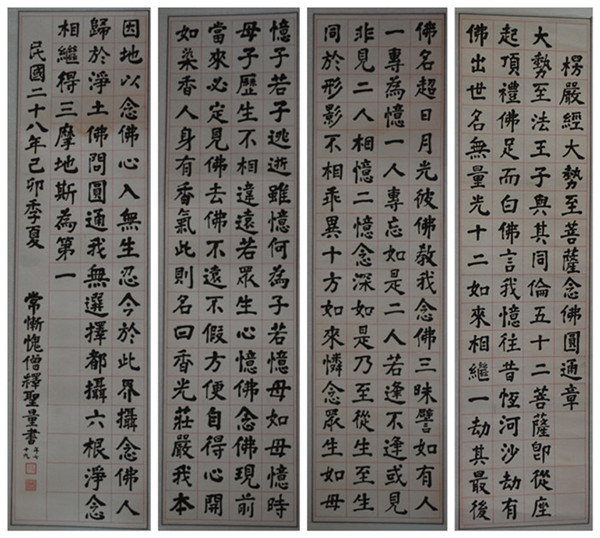 楞嚴經大勢至菩薩念佛圓通章
大勢至法王子與其同倫五十二菩薩卽從座
起頂禮佛足而白佛言我憶往昔恆河沙劫有
佛出世名無量光十二如來相繼一劫其最後
佛名超日月光彼佛教我念佛三昧譬如有人
一專為憶一人專忘如是二人若逢不逢或見
非見二人相憶二憶念深如是乃至從生至生
同於形影不相乖異十方如來憐念眾生如母
憶子若子逃逝雖憶何為子若憶母如母憶時
母子歷生不相違遠若眾生心憶佛念佛現前
當來必定見佛去佛不遠不假方便自得心開
如染香人身有香氣此則名曰香光莊嚴我本
因地以念佛心入無生忍今於此界攝念佛人
歸於淨土佛問圓通我無選擇都攝六根淨念
相繼得三摩地斯為第一
民國二十八年己卯季夏
常慚愧僧釋聖量書
年七十九